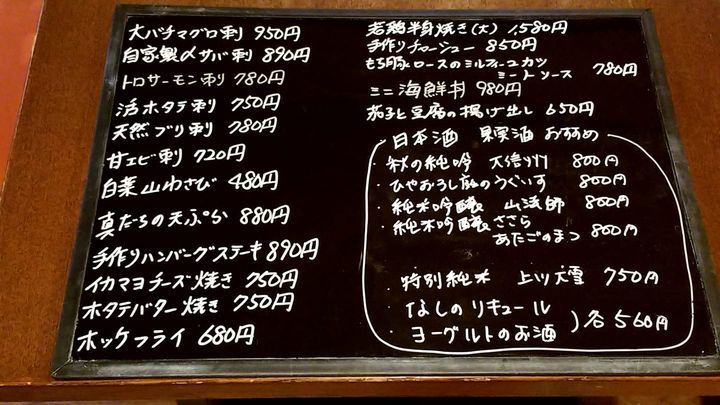 大バチマグロ刺 950円
自家製〆サバ刺 890円
トロサーモン刺 780円
活ホタテ刺 750円
天然ブリ刺 780円
甘エビ刺 720円
白菜山わさび 480円
真だちの天ぷら 880円
手作りハンバーグステーキ 890円
イカマヨチーズ焼き 750円
ホタテバター焼き 750円
ホッケフライ 680円
若鶏半身焼き(大) 1,580円
手作りチャーシュー 850円
もち豚ロースのミルフィーユカツ
ミートソース 780円
ミニ海鮮丼 980円
茄子と豆腐の揚げ出し 650円
日本酒 果実酒 おすすめ
・秋の純吟 大信州 800円
・ひやおろし 庭のうぐいす 800円
・純米吟醸 山法師 800円
・純米吟醸 ささら
あたごのまつ 800円
・特別純米 上川大雪 750円
・なしのリキュール
・ヨーグルトのお酒 ) 各560円